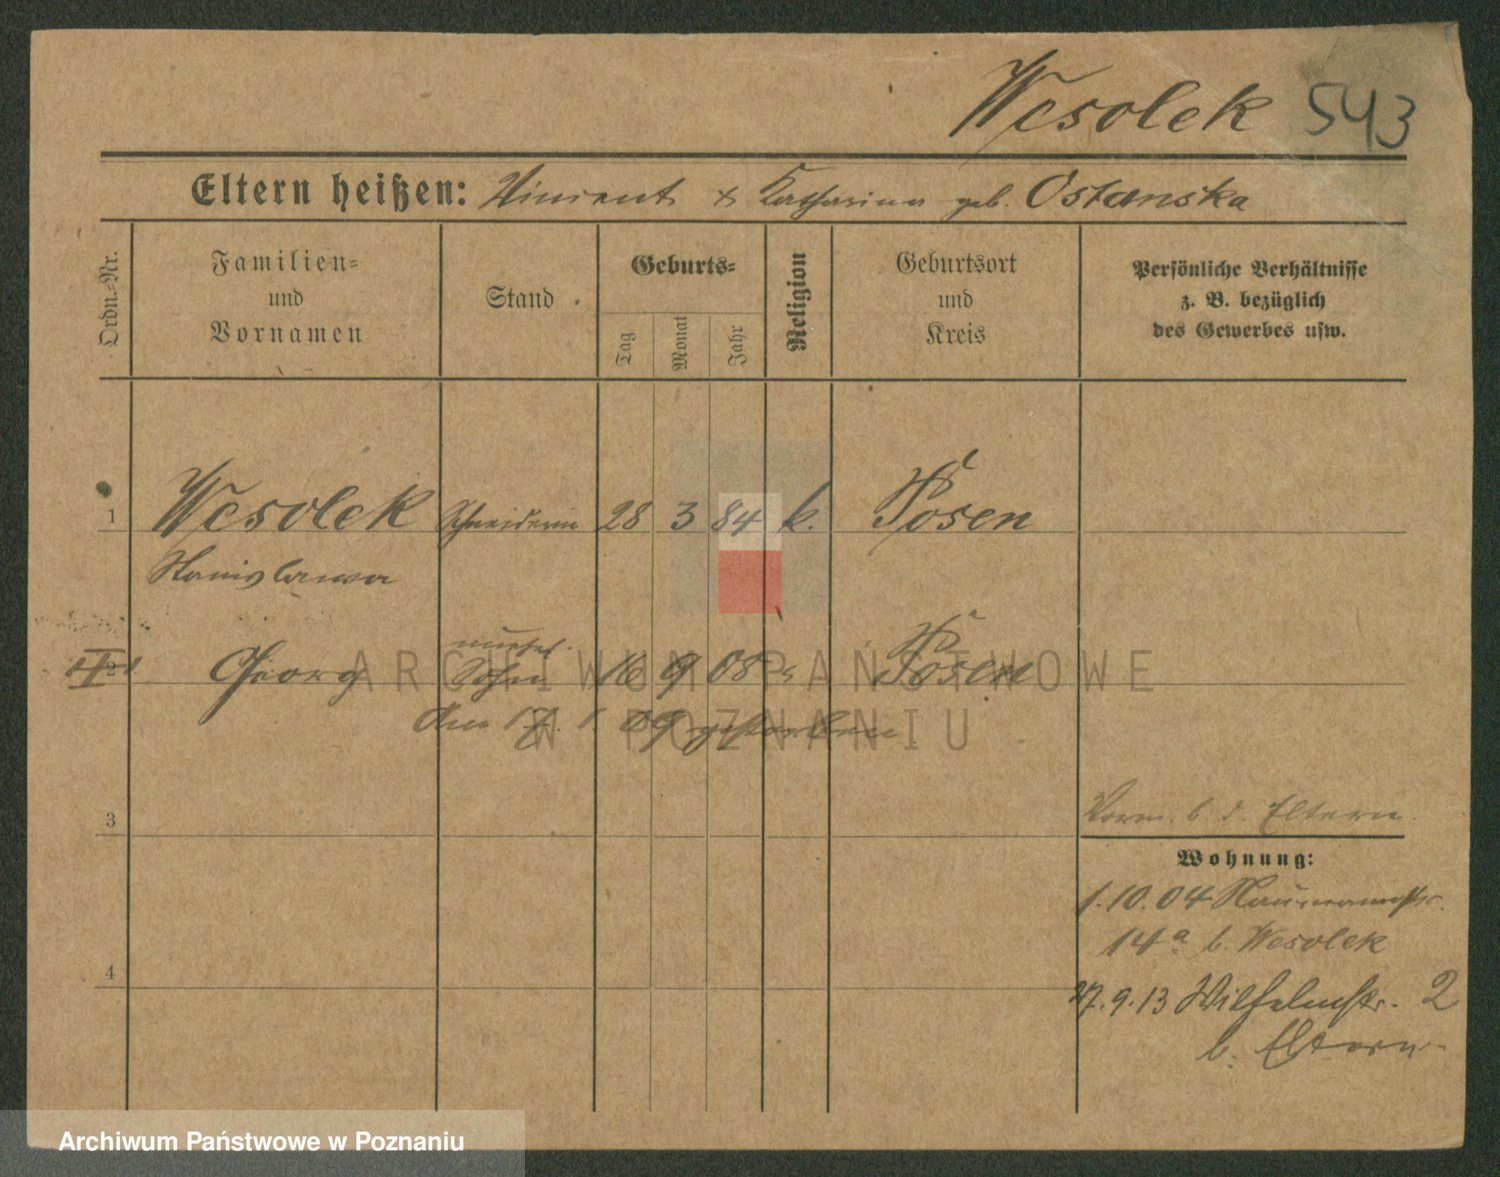 Wesolek 543
Eltern heißen: Vincent & Katharina geb. Ostanska
Ordn.-Nr.
Familien-
und
Vornamen
Stand
Geburts-
Tag
Monat
Jahr
Religion
Geburtsort
und
Kreis
Persönliche Verhältnisse
z. B. bezüglich
des Gewerbes usw.
1 Wesolek Schneiderin 28 3 84 k. Posen
Stanislawa
unehel.
2 Georg Sohn 16 9 08 Posen
Am 17. 1. 09 gestorben
3
Vorm. b. d. Eltern
Wohnung:
1.10.04 Naumannstr.
14a b. Wesolek
4
27.9.13 Wilhelmstr. 2
b. Eltern
ARCHIWUM PAŃSTWOWE
W POZNANIU
Archiwum Państwowe w Poznaniu